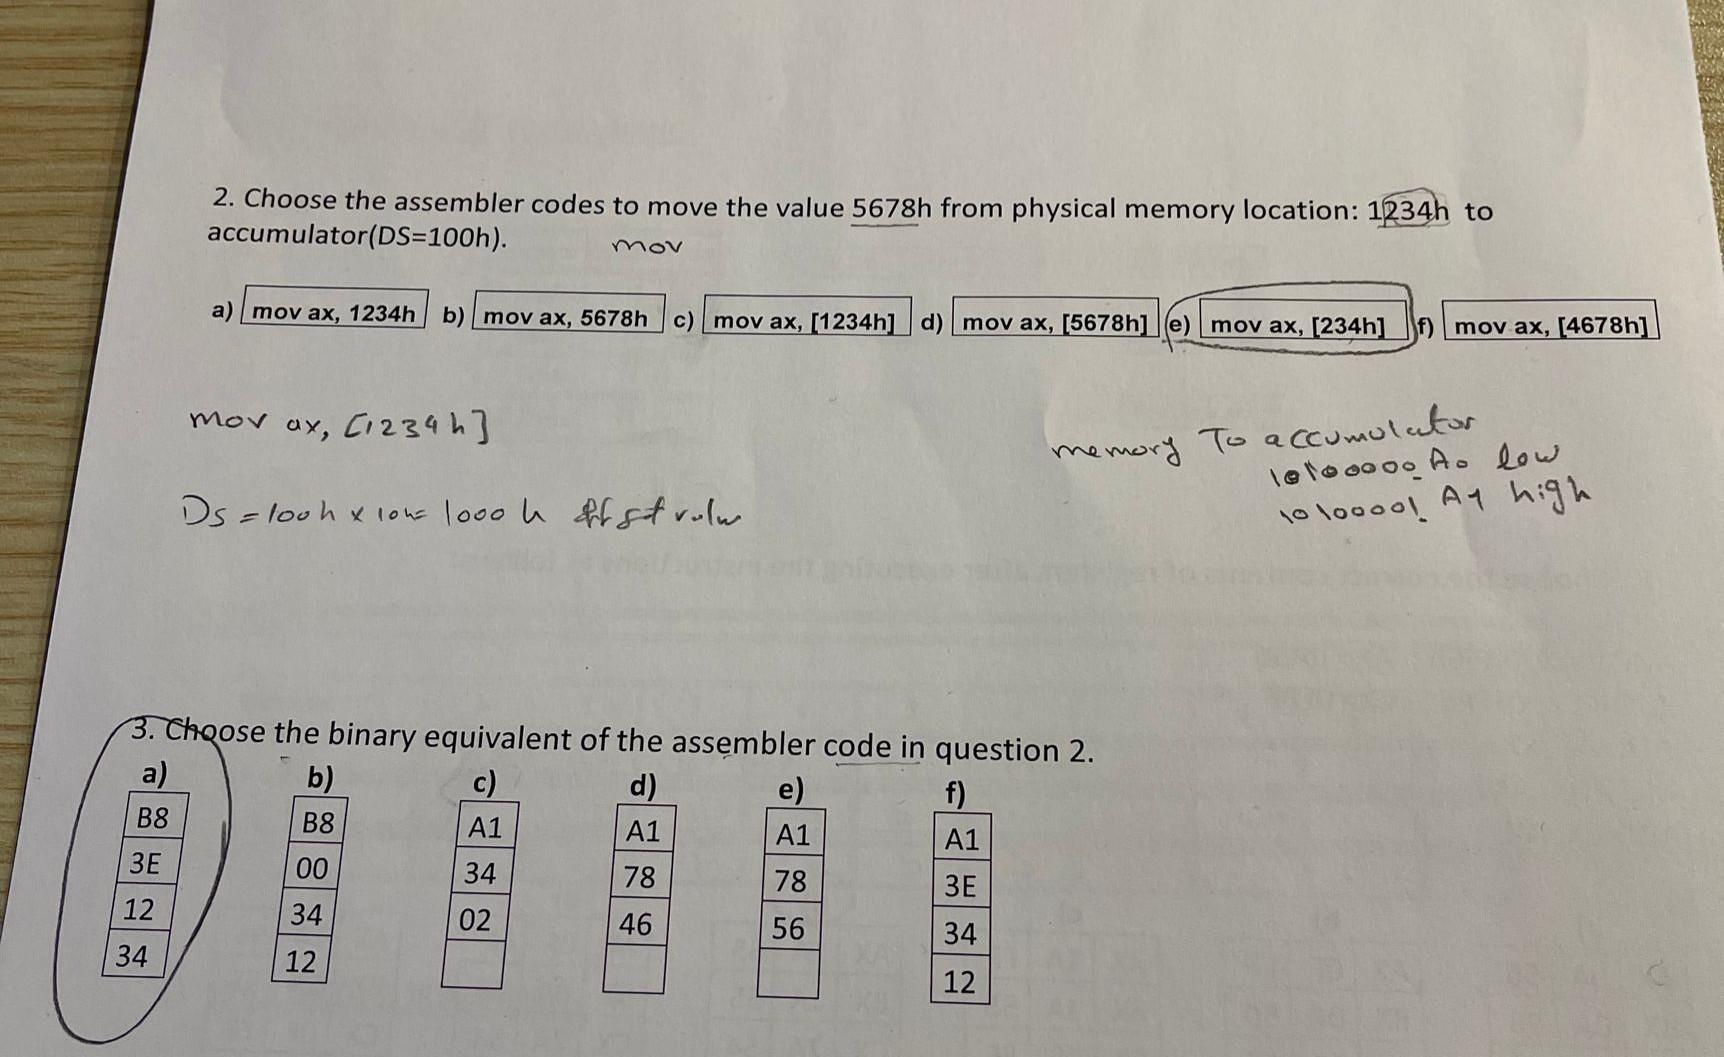 2. Choose the assembler codes to move the value 5678h from physical memory location: 1234h to
accumulator(DS=100h).
mov
a) mov ax, 1234h b) mov ax, 5678h c) mov ax, [1234h] d) mov ax, [5678h] e) mov ax, [234h] f) mov ax, [4678h]
mov ax, [1234h]
memory To accumulator
10100000 A0 low
1010000! A1 high
Ds = 100h x 10h= 1000 h
3. Choose the binary equivalent of the assembler code in question 2.
a) b) c) d) e) f)
B8 B8 A1 A1 A1 A1
3E 00 34 78 78 3E
12 34 02 46 56 34
34 12 12